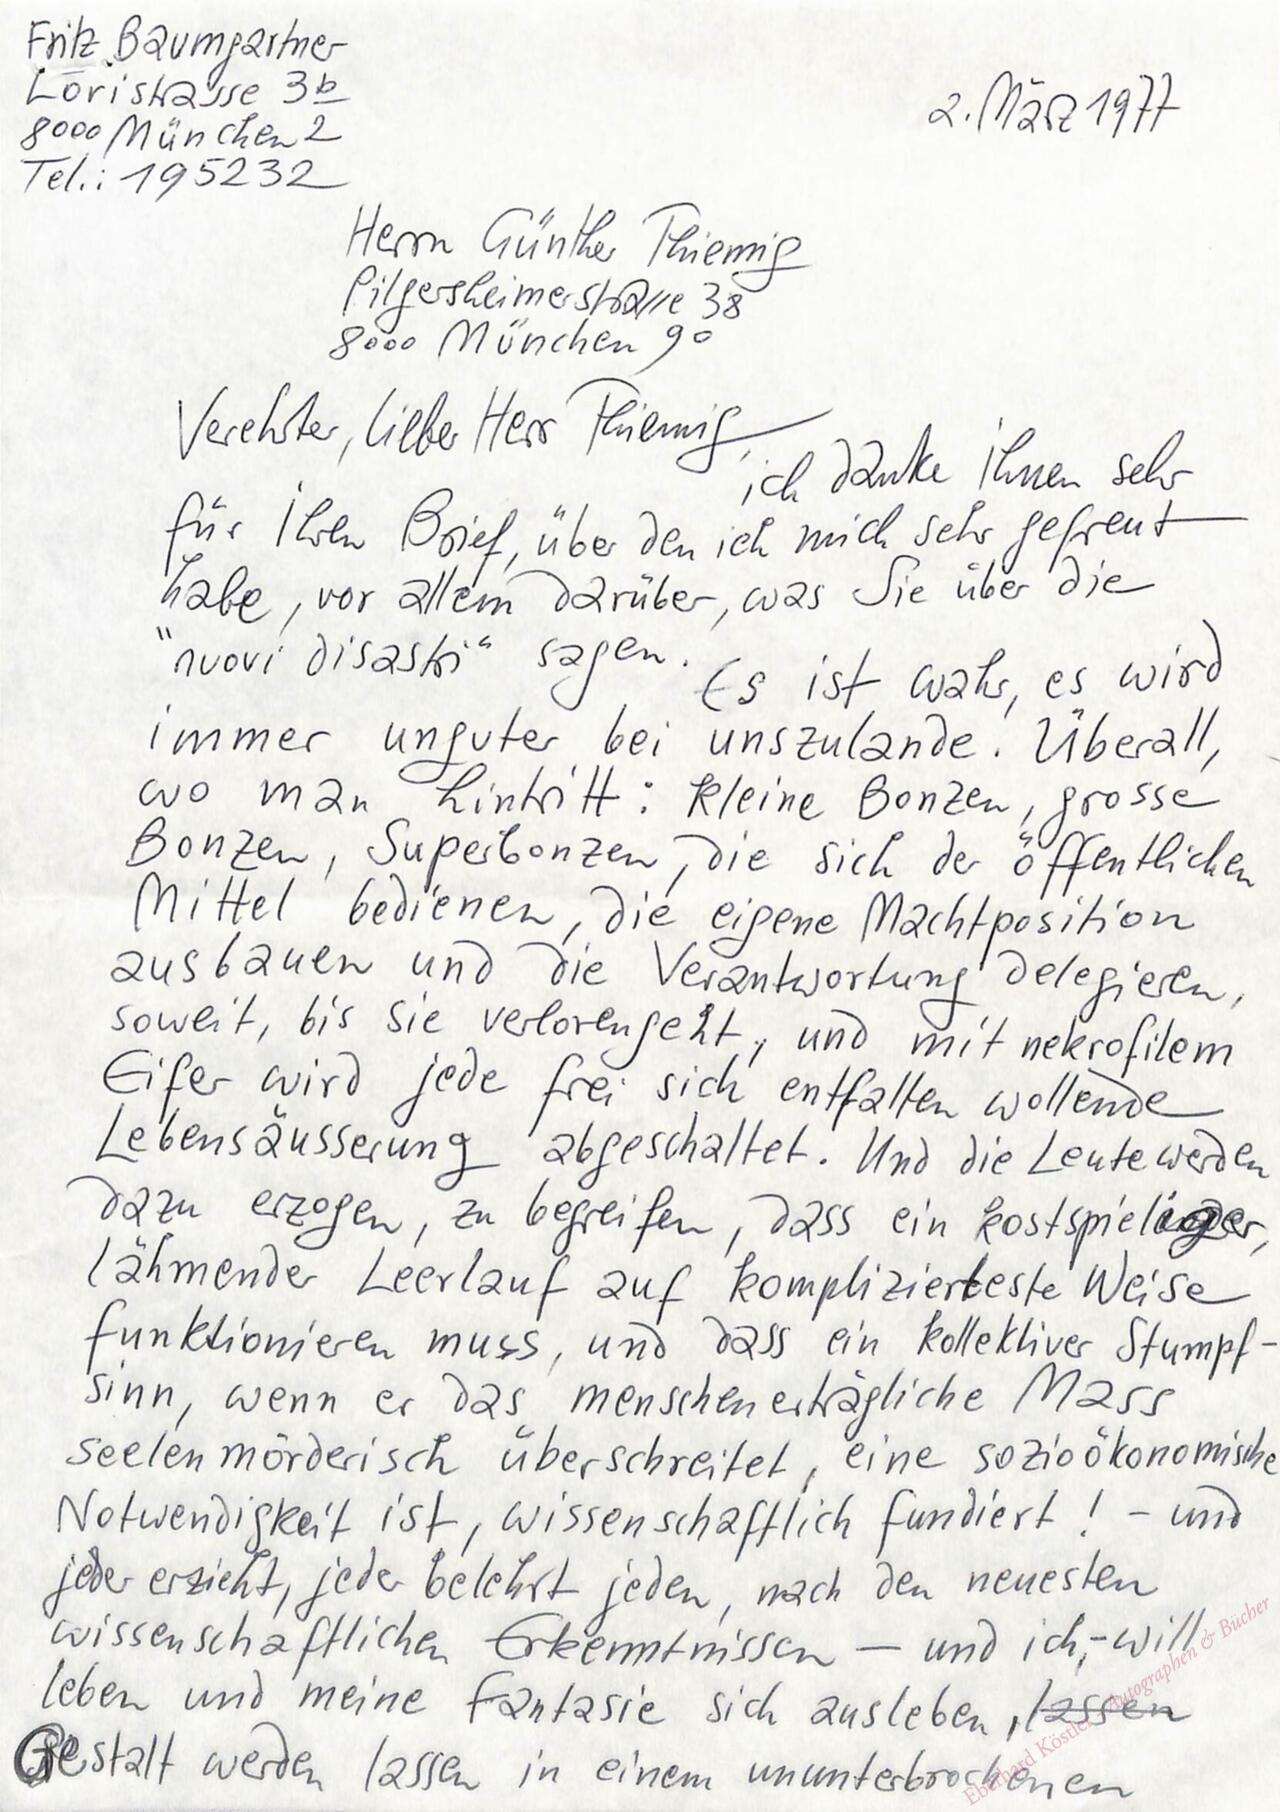 Fritz Baumgartner
Loristrasse 3b
8000 München 2
Tel.: 195232
2. März 1977
Herrn Günther Thiemig
Pilgersheimerstrasse 38
8000 München 90
Verehrter, lieber Herr Thiemig,
ich danke Ihnen sehr
für Ihren Brief, über den ich mich sehr gefreut
habe, vor allem darüber, was Sie über die
"nuovi disastri" sagen.
Es ist wahr, es wird
immer unguter bei unszulande. Überall,
wo man hintritt: kleine Bonzen, grosse
Bonzen, Superbonzen, die sich der öffentlichen
Mittel bedienen, die eigene Machtposition
ausbauen und die Verantwortung delegieren,
soweit, bis sie verlorengeht, und mit nekrofilem
Eifer wird jede frei sich entfalten wollende
Lebensäusserung abgeschaltet. Und die Leute werden
dazu erzogen, zu begreifen, dass ein kostspieliger,
lähmender Leerlauf auf komplizierteste Weise
funktionieren muss, und dass ein kollektiver Stumpf-
sinn, wenn er das menschenerträgliche Mass
seelenmörderisch überschreitet, eine sozioökonomische
Notwendigkeit ist, wissenschaftlich fundiert! - und
jeder erzieht, jeder belehrt jeden, nach den neuesten
wissenschaftlichen Erkenntnissen — und ich,- will
leben und meine Fantasie sich ausleben, lassen
Gestalt werden lassen in einem ununterbrochenen
Eberhard Köstler - Autographen & Bücher